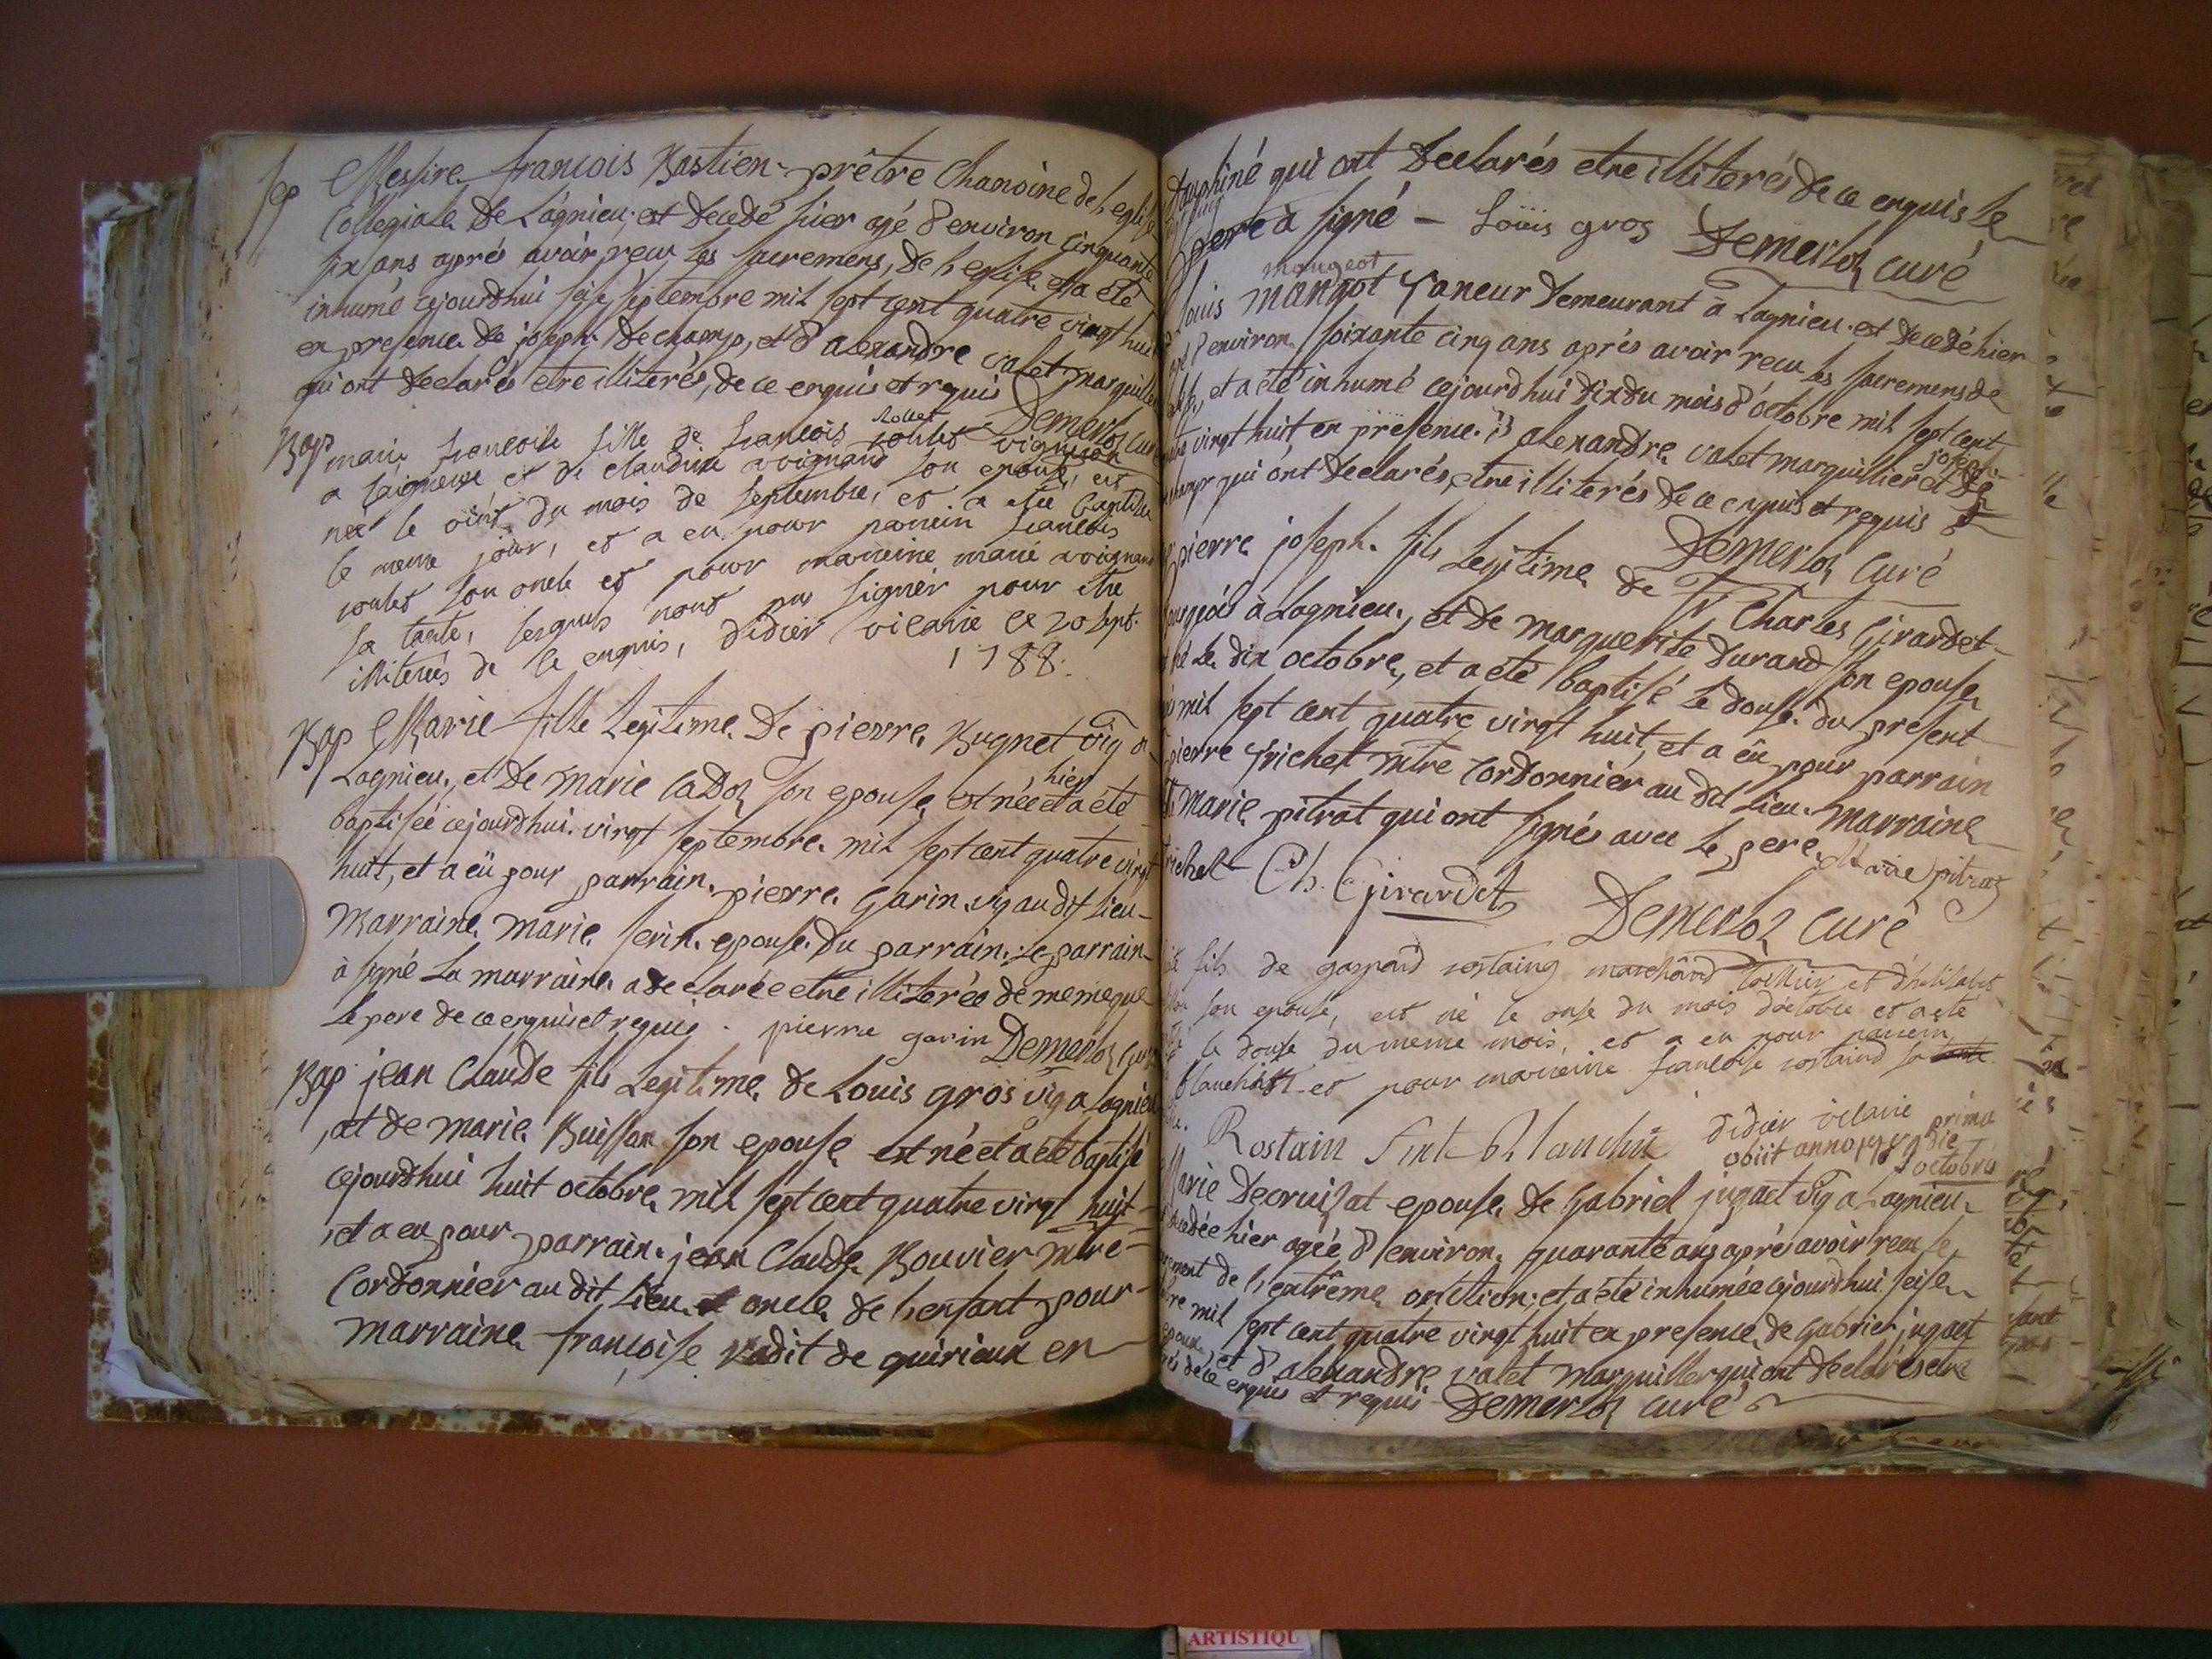 sep Messire françois Bastien prêtre Chanoine de l'eglise
Collegiale de Lagnieu est decedé hier agé d'environ Cinquante
six ans aprés avoir reçu Les sacremens de l'eglise et a été
inhumé cejourdhui seise septembre mil sept cent quatre vingt huit
en presence de joseph dechamp, et d'alexandre valet marguillier
qui ont declarés etre illiterés, de ce enquis et requis Demerloz curé
Bap marie francoise fille de francois Rollet vigneron
a laignieux et de claudine avignand son epouse, est
née le vint du mois de septembre, et a eté baptisée
le meme jour, et a eu pour parrein francois
son oncle et pour marreine marie avignand
sa tante, lesquels nont pas signér pour être
illiterés de ce enquis, didier vicaire ce 20 sept.
1788.
Bap Marie fille Legitime De pierre Bugnet vig a
Lagnieu, et de marie Cadoz son epouse est née hier et a été
baptisée cejourdhui vingt septembre mil sept cent quatre vingt
huit, et a eü pour parrain pierre Garin vig au dit Lieu
Marraine Marie Serin epouse du parrain. Le parrain
à signé La marraine a declarée etre illiterées de meme que
Le pere de ce enquis et requis. pierre garin Demerloz Curé
Bap jean Claude fils Legitime de Louis gros vig a Lagnieu
et de marie Buisson son epouse est né et a eté baptisé
cejourdhui huit octobre mil sept cent quatre vingt huit
et a eu pour parrain jean Claude Bouvier mtre
Cordonnier au dit Lieu oncle de l'enfant pour
marraine françoise vadit de quirieux en
dauphiné qui ont declarés etre illiterés de ce enquis Le
pere à signé - Loüis gros Demerloz curé
mangeot
Louis mangot Taneur demeurant à Lagnieu est decedé hier
agé d'environ soixante cinq ans aprés avoir recu Les sacremens de
et a été inhumé cejourdhui dix du mois d'octobre mil sept cent
vingt huit en presence d'alexandre valet marguillier et de joseph
champ qui ont declarés etre illiterés de ce enquis et requis
Demerloz Curé
pierre joseph fils Legitime de Sr Charles Girardet
Bourgeois à Lagnieu, et de marguerite durand son epouse
né Le dix octobre, et a eté baptisé Le douse du present
mil sept cent quatre vingt huit, et a eü pour parrain
pierre frichet mtre Cordonnier au dit Lieu. Marraine
Marie pitrat qui ont signés avec Le pere. Marie pitrat
frichet Ch. Girardet
Demerloz Curé
fils de gaspard rostaing marchand et d'helisabet
son epouse, est né le onse du mois d'octobre et a eté
le douse du meme mois, et a eu pour parrein
Blanchet et pour marreine francoise rostaind sa
Rostain Blanchet didier vicaire
obiit anno 1789 die prima octobris
Marie Decruisat epouse de Gabriel juganet vig a Lagnieu
decedée hier agée d'environ quarante ans aprés avoir recu Le
sacrement de l'extrême onction, et a été inhumée cejourdhui seise
octobre mil sept cent quatre vingt huit en presence de Gabriel juganet
epoux, et d'alexandre valet Marguillier qui ont declarés etre
de ce enquis et requis Demerloz curé
ARTISTIQU